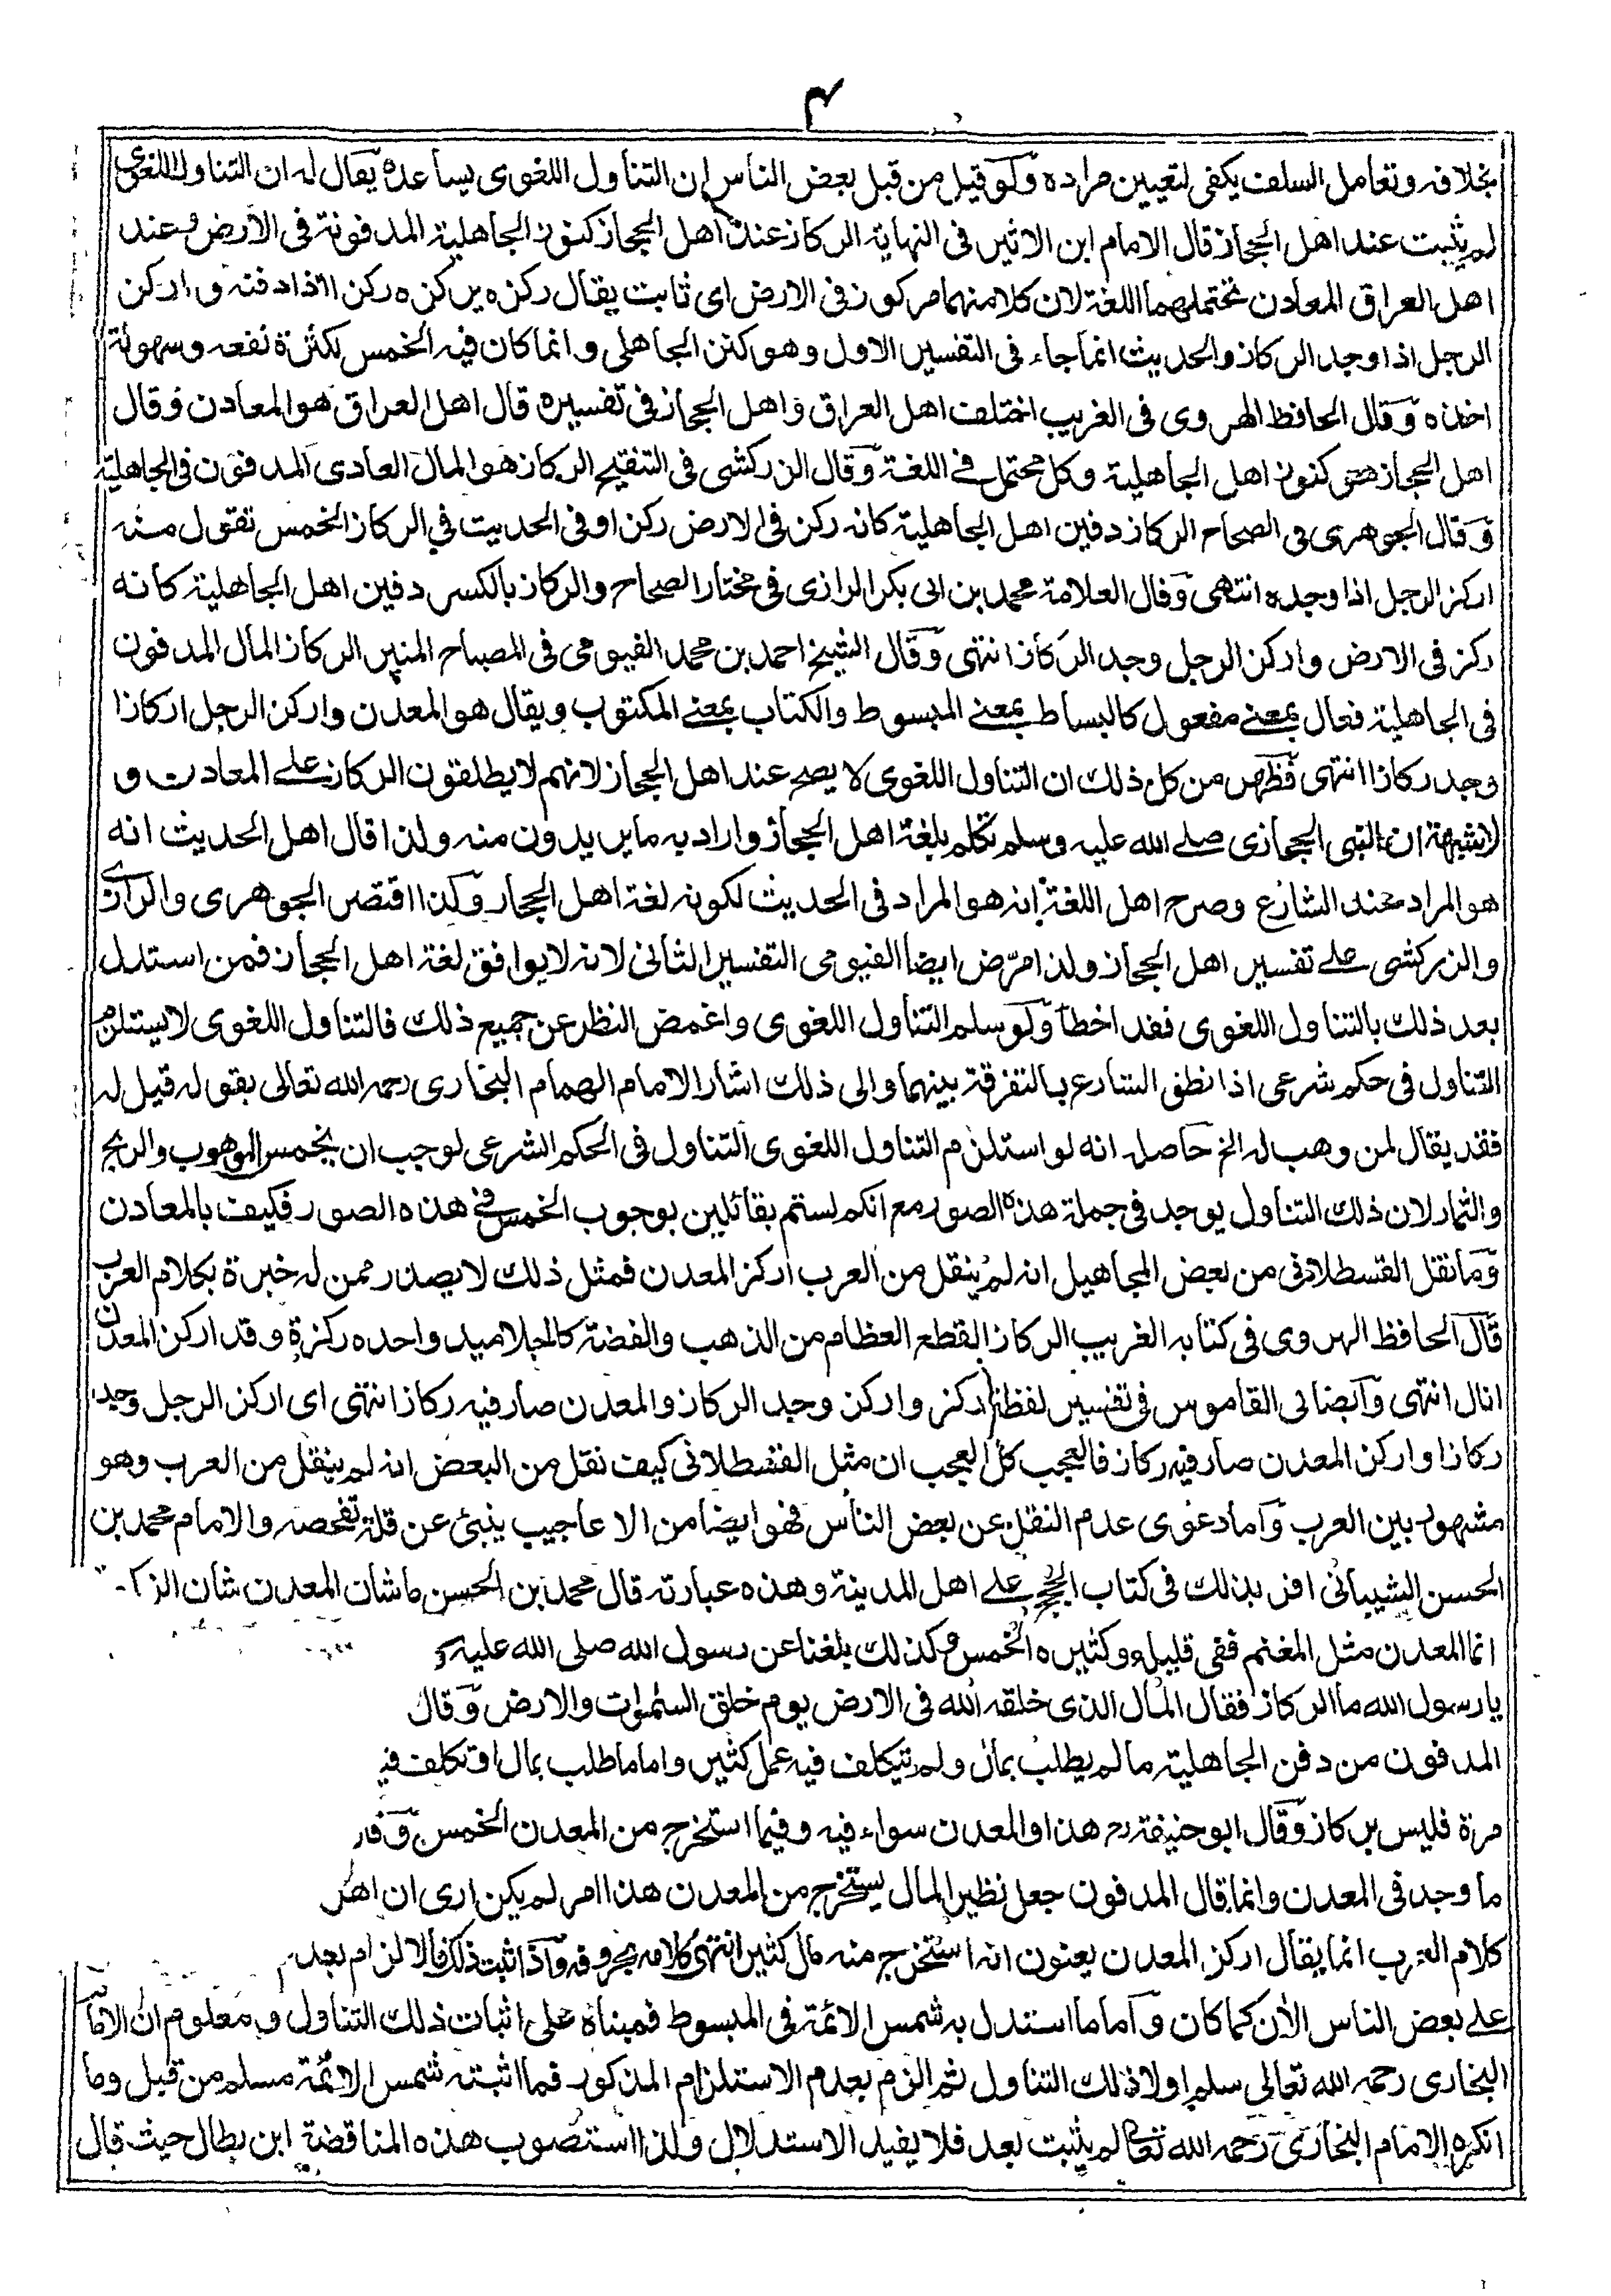 ۴
بخلافه وتعامل السلف يكفى لتعيين مراده ولو قيل من قبل بعض الناس ان التناول اللغوى يساعده يقال له ان التناول اللغوى
لم يثبت عند اهل الحجاز قال الامام ابن الاثير فى النهاية الركاز عند اهل الحجاز كنوز الجاهلية المدفونة فى الارض وعند
اهل العراق المعادن تحتملهما اللغة لان كلا منهما مركوز فى الارض اى ثابت يقال ركزه يركزه ركزا اذا دفنه واركز
الرجل اذا وجد الركاز والحديث انما جاء فى التفسير الاول وهو كنز الجاهلى وانما كان فيه الخمس لكثرة نفعه وسهولة
اخذه وقال الحافظ الهروى فى الغريب اختلف اهل العراق واهل الحجاز فى تفسيره قال اهل العراق هو المعادن وقال
اهل الحجاز هو كنوز اهل الجاهلية وكل محتمل فى اللغة وقال الزركشى فى التنقيح الركاز هو المال العادى المدفون فى الجاهلية
وقال الجوهرى فى الصحاح الركاز دفين اهل الجاهلية كانه ركز فى الارض ركزا وفى الحديث فى الركاز الخمس تقول منه
اركز الرجل اذا وجده انتهى وقال العلامة محمد بن ابى بكر الرازى فى مختار الصحاح والركاز بالكسر دفين اهل الجاهلية كانه
ركز فى الارض واركز الرجل وجد الركاز انتهى وقال الشيخ احمد بن محمد الفيومى فى المصباح المنير الركاز المال المدفون
فى الجاهلية فعال بمعنى مفعول كالبساط بمعنى المبسوط والكتاب بمعنى المكتوب ويقال هو المعدن واركز الرجل اركازا
وجد ركازا انتهى فظهر من كل ذلك ان التناول اللغوى لا يصح عند اهل الحجاز لانهم لا يطلقون الركاز على المعادن و
لا شبهة ان النبى الحجازى صلى الله عليه وسلم تكلم بلغة اهل الحجاز واراد به ما يريدون منه ولذا قال اهل الحديث انه
هو المراد عند الشارع وصرح اهل اللغة انه هو المراد فى الحديث لكونه لغة اهل الحجاز وكذا اقتصر الجوهرى والرازى
والزركشى على تفسير اهل الحجاز ولذا مرّض ايضا الفيومى التفسير الثانى لانه لا يوافق لغة اهل الحجاز فمن استدل
بعد ذلك بالتناول اللغوى فقد اخطا ولو سلم التناول اللغوى واغمض النظر عن جميع ذلك فالتناول اللغوى لا يستلزم
التناول فى حكم شرعى اذا نطق الشارع بالتفرقة بينهما والى ذلك اشار الامام الهمام البخارى رحمه الله تعالى بقوله قيل له
فقد يقال لمن وهب له الخ حاصله انه لو استلزم التناول اللغوى التناول فى الحكم الشرعى لوجب ان يخمس الموهوب والربح
والثمار لان ذلك التناول يوجد فى جملة هذه الصور مع انكم لستم بقائلين بوجوب الخمس فى هذه الصور فكيف بالمعادن
وما نقل القسطلانى من بعض المجاهيل انه لم ينقل من العرب اركز المعدن فمثل ذلك لا يصدر ممن له خبرة بكلام العرب
قال الحافظ الهروى فى كتابه الغريب الركاز القطع العظام من الذهب والفضة كالجلاميد واحده ركزة وقد اركز المعدن
انال انتهى وايضا فى القاموس فى تفسير لفظ اركز واركز وجد الركاز والمعدن صار فيه ركاز انتهى اى اركز الرجل وجد
ركازا واركز المعدن صار فيه ركاز فالعجب كل العجب ان مثل القسطلانى كيف نقل من البعض انه لم ينقل من العرب وهو
مشهور بين العرب واما دعوى عدم النقل عن بعض الناس فهو ايضا من الاعاجيب ينبئ عن قلة تفحصه والامام محمد بن
الحسن الشيبانى اقر بذلك فى كتاب الحجج على اهل المدينة وهذه عبارته قال محمد بن الحسن ما شان المعدن شان
انما المعدن مثل المغنم ففى قليله وكثيره الخمس وكذلك بلغنا عن رسول الله صلى الله عليه و
يا رسول الله ما الركاز فقال المال الذى خلقه الله فى الارض يوم خلق السموات والارض وقال
المدفون من دفن الجاهلية ما لم يطلب بمال ولم يتكلف فيه عمل كثير واما ما طلب بمال او تكلف فيه
مرة فليس بركاز وقال ابو حنيفة رح هذا والمعدن سواء فيه وفيما استخرج من المعدن الخمس
ما وجد فى المعدن وانما قال المدفون جعل نظير المال يستخرج من المعدن هذا امر لم يكن ارى ان اهل
كلام العرب انما يقال اركز المعدن يعنون انه استخرج منه مال كثير انتهى كلامه بحروفه واذا ثبت ذلك فالالزام بعد
على بعض الناس الأن كما كان واما ما استدل به شمس الائمة فى المبسوط فمبناه على اثبات ذلك التناول ومعلوم ان الامام
البخارى رحمه الله تعالى سلم اولا ذلك التناول ثم الزم بعدم الاستلزام المذكور فما اثبته شمس الائمة مسلم من قبل وما
انكره الامام البخارى رحمه الله تعالى لم يثبت بعد فلا يفيد الاستدلال ولذا استصوب هذه المناقضة ابن بطال حيث قال